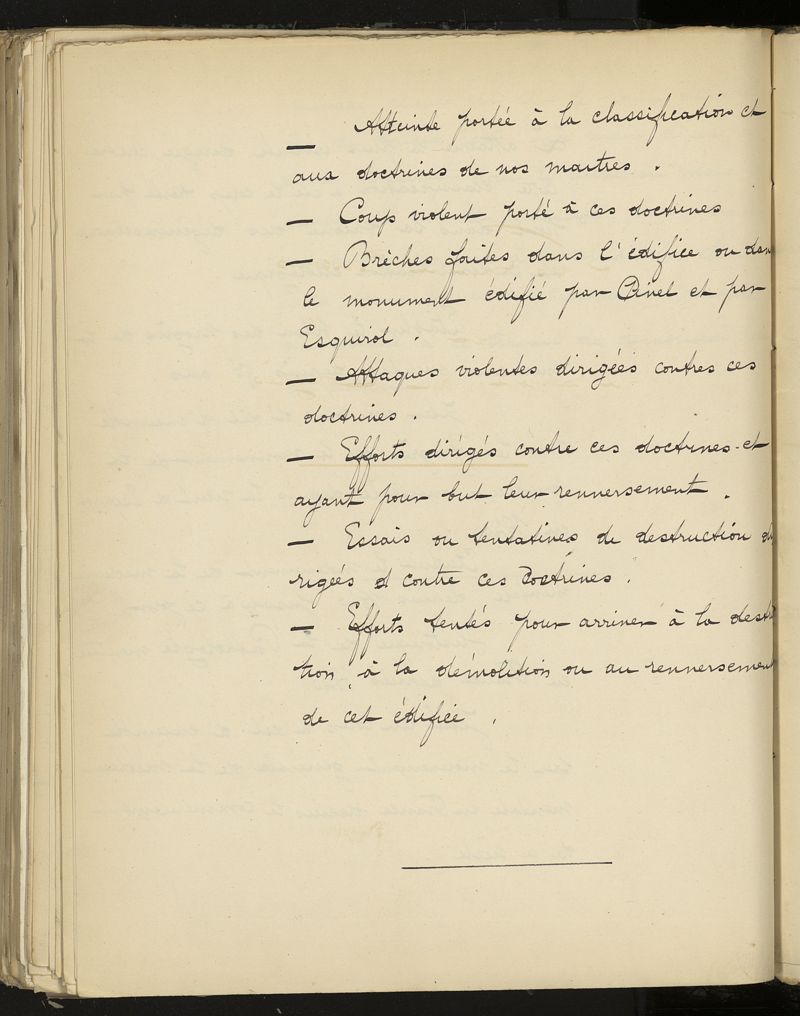 — Atteinte portée à la classification et
aux doctrines de nos maîtres .
— Coup violent porté à ces doctrines
— Brèches faites dans l'édifice ou dans
le monument édifié par Pinel et par
Esquirol .
— Attaques violentes dirigées contres ces
doctrines .
— Efforts dirigés contre ces doctrines et
ayant pour but leur renversement .
— Essais ou tentatives de destruction di
rigées contre ces doctrines .
— Efforts tentés pour arriver à la destruc
tion, à la démolition ou au renversement
de cet édifice .